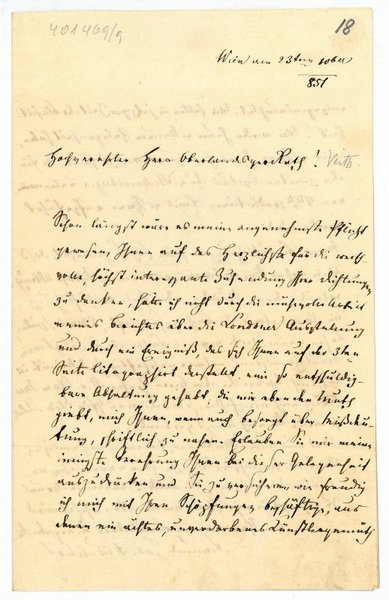 401469/9
18
Wien am 23ten 10ber
851
Hochverehrter Herr Oberlandesger Rath!
Schon längst wäre es meine angenehmste Pflicht
gewesen, Ihnen auf das Herzlichste für die
höchst interessante Zusendung Ihrer Dichtungen
zu danken, hätte ich nicht durch die mühevolle Arbeit
meines Berichtes über die Londoner Ausstellung
und durch ein Ereigniß, das sich Ihnen auf der 3ten
Seite litographirt darstellt, eine so entschuldig-
bare Abhaltung gehabt, die mir eben den Muth
giebt, mich Ihnen, wenn auch besorgt über Mißdeu-
tung, schriftlich zu nahen. Erlauben Sie mir meine
innigste Verehrung Ihnen bei dieser Gelegenheit
auszudrücken und Sie zu versichern, wie freudig
ich mich mit Ihren Schöpfungen beschäftige, aus
denen ein ächtes, unverdorbenes Künstlergemüth